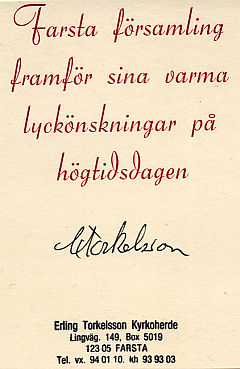 Farsta församling
framför sina varma
lyckönskningar på
högtidsdagen
ETorkelsson
Erling Torkelsson Kyrkoherde
Lingväg. 149, Box 5019
123 05 FARSTA
Tel. vx. 94 01 10. kh 93 93 03